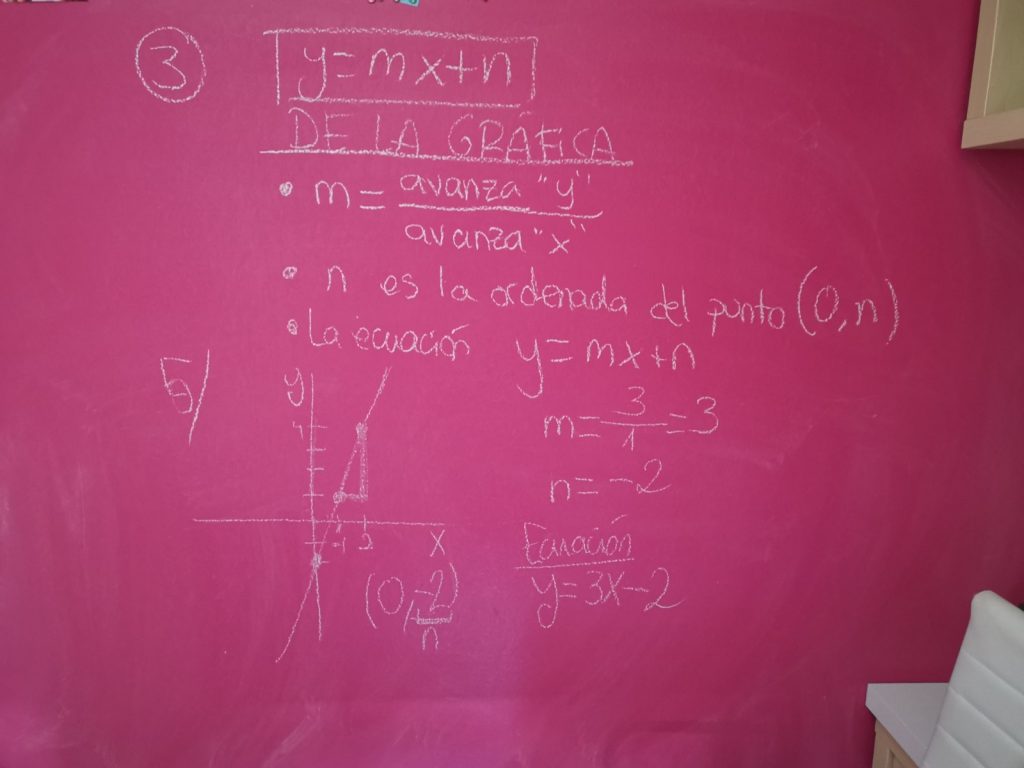 3
y=mx+n
DE LA GRÁFICA
• m = avanza "y"
avanza "x"
• n es la ordenada del punto (0,n)
• La ecuación y=mx+n
5/
y
4
1 2 x
(0,-2)
n
m = 3/1 = 3
n = -2
Ecuación
y=3x-2